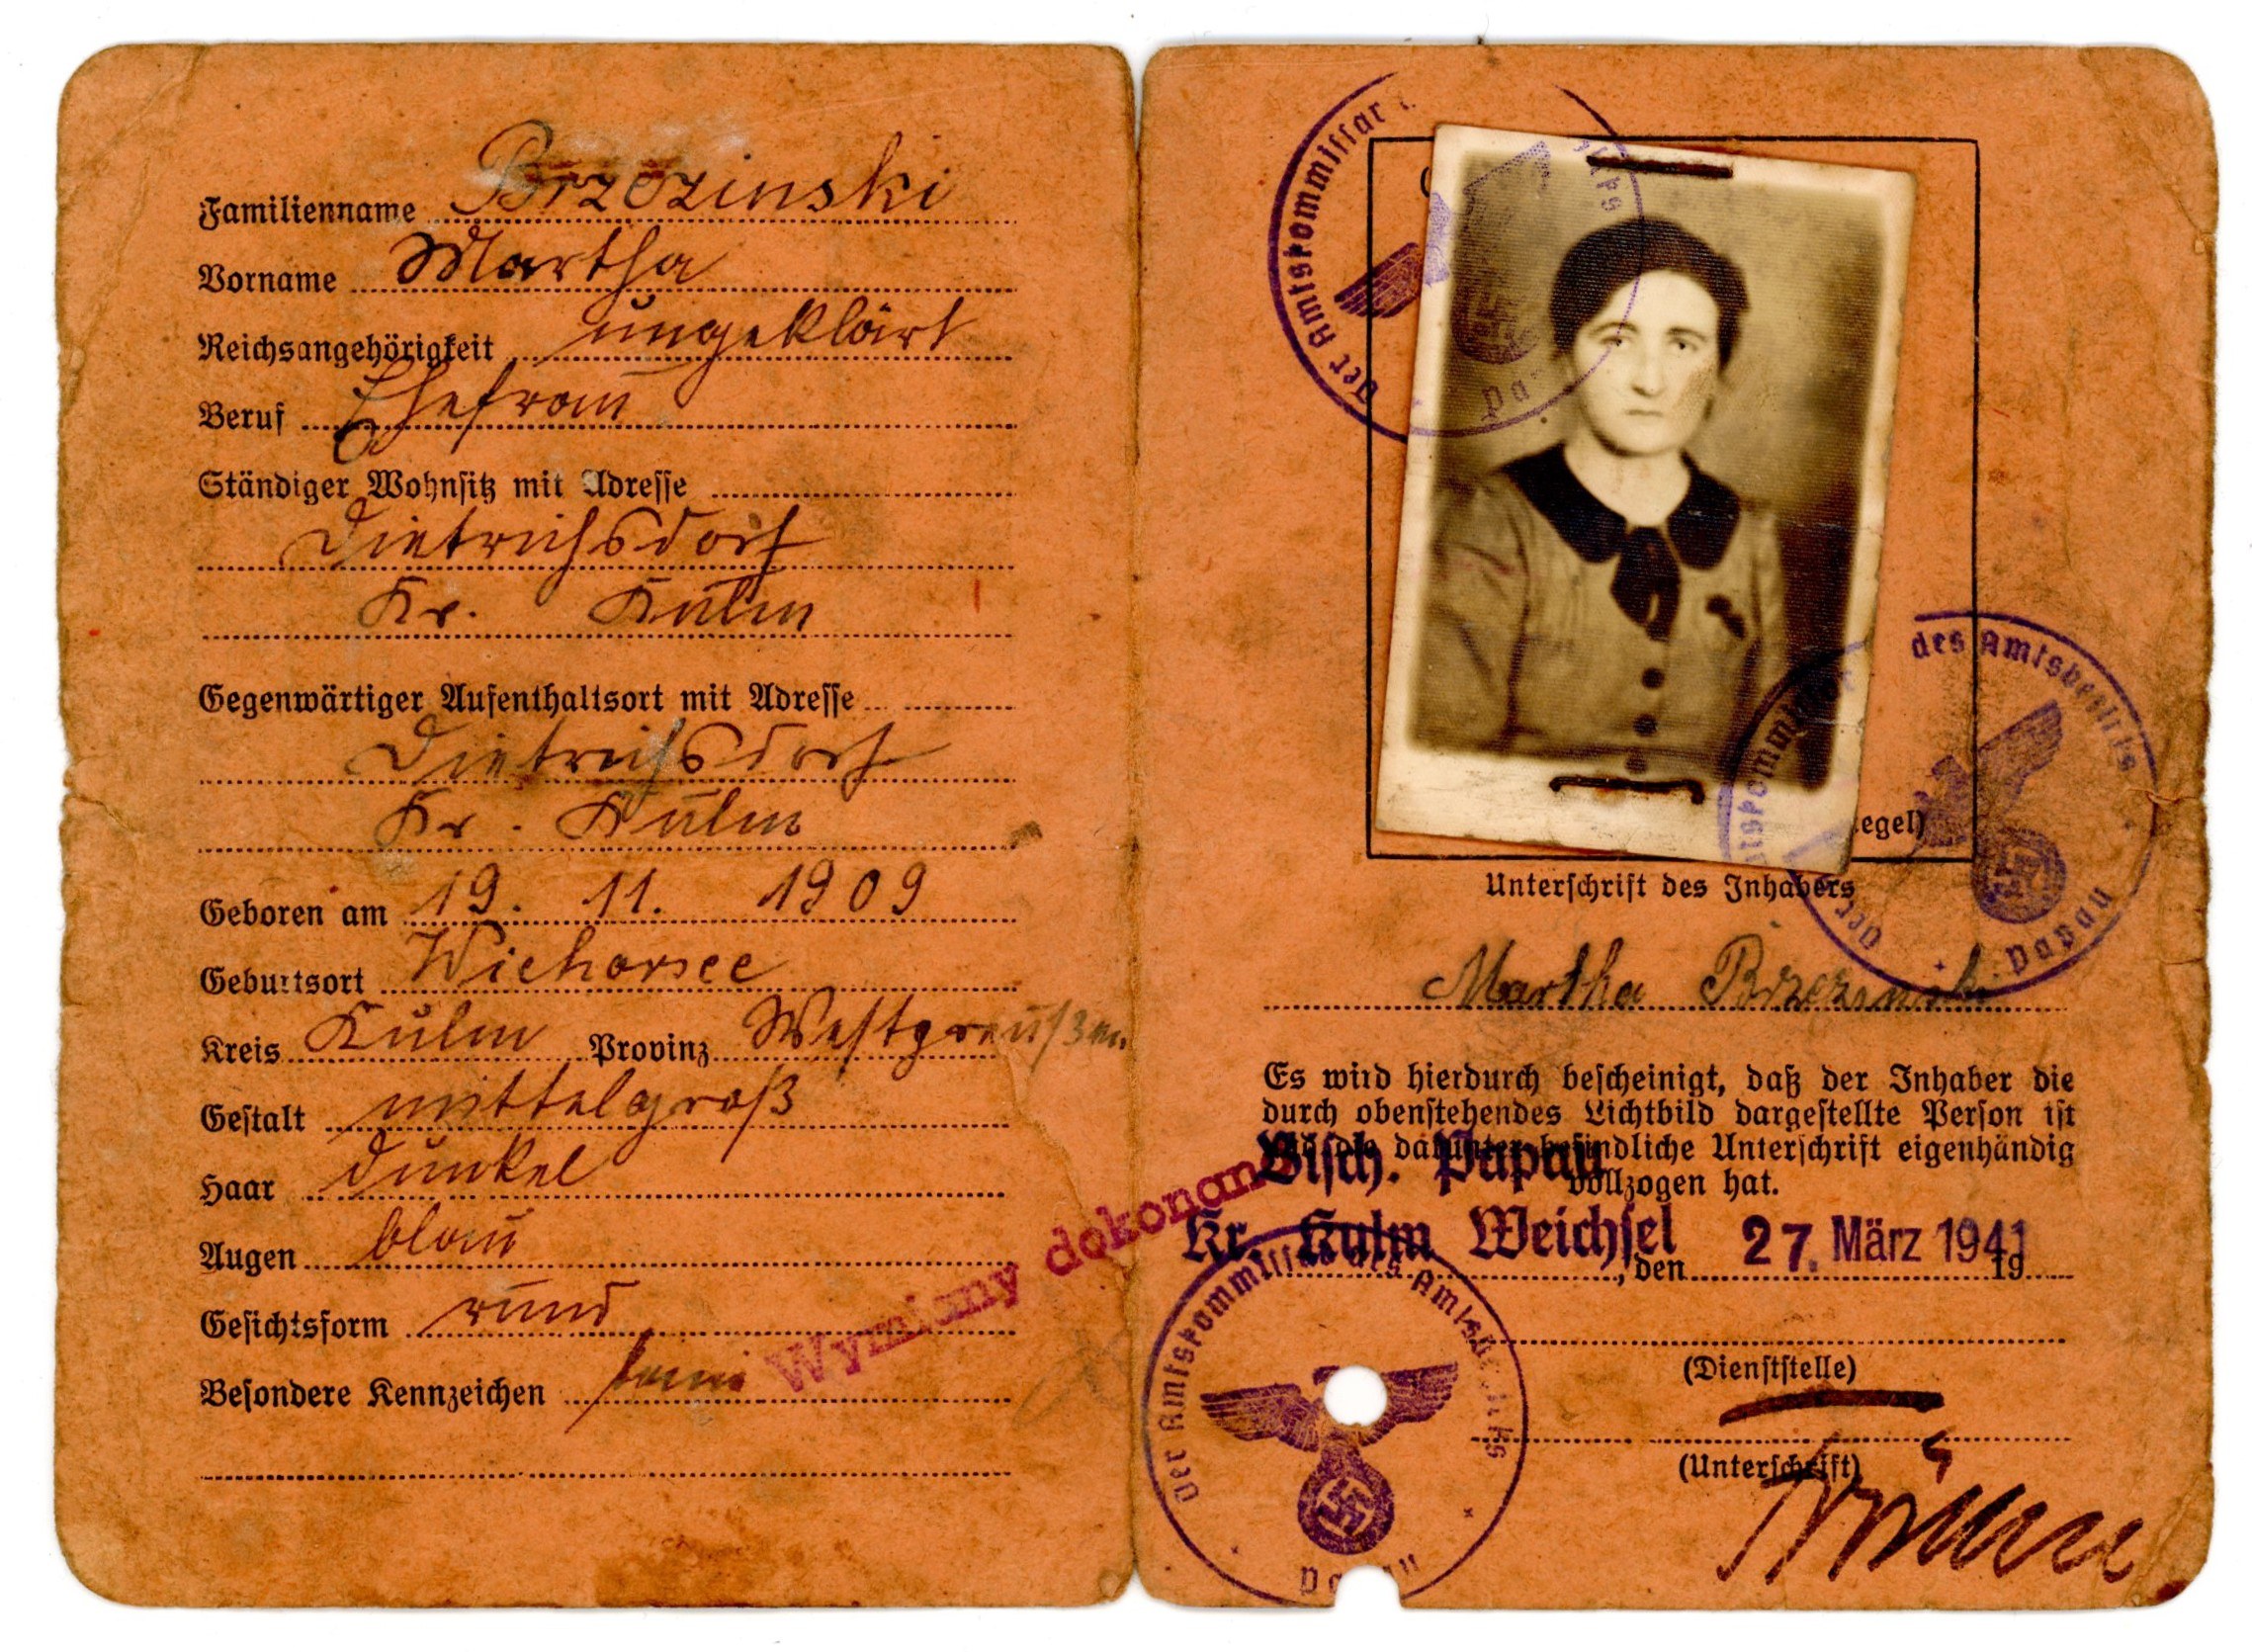 Familienname Brzezinski
Vorname Martha
Reichsangehörigkeit ungeklärt
Beruf Ehefrau
Ständiger Wohnsitz mit Adresse
Dietrichsdorf
Kr. Kulm
Gegenwärtiger Aufenthaltsort mit Adresse
Dietrichsdorf
Kr. Kulm
Geboren am 19. 11. 1909
Geburtsort Wichorsee
Kreis Kulm Provinz Westpreußen.
Gestalt mittelgroß
Haar dunkel
Augen blau
Gesichtsform rund
Besondere Kennzeichen keine
Wymiany dokonano
Der Amtskommissar
egel)
Der Amtskommissar des Amtsbezirks
Papau
Unterschrift des Inhabers
Martha Brzezinski
Es wird hierdurch bescheinigt, daß der Inhaber die
durch obenstehendes Lichtbild dargestellte Person ist
und die darunter befindliche Unterschrift eigenhändig
vollzogen hat.
Bisch. Papau
Kr. Kulm Weichsel, den 27. März 1941 19
(Dienststelle)
(Unterschrift)
Der Amtskommissar des Amtsbezirks
Papau